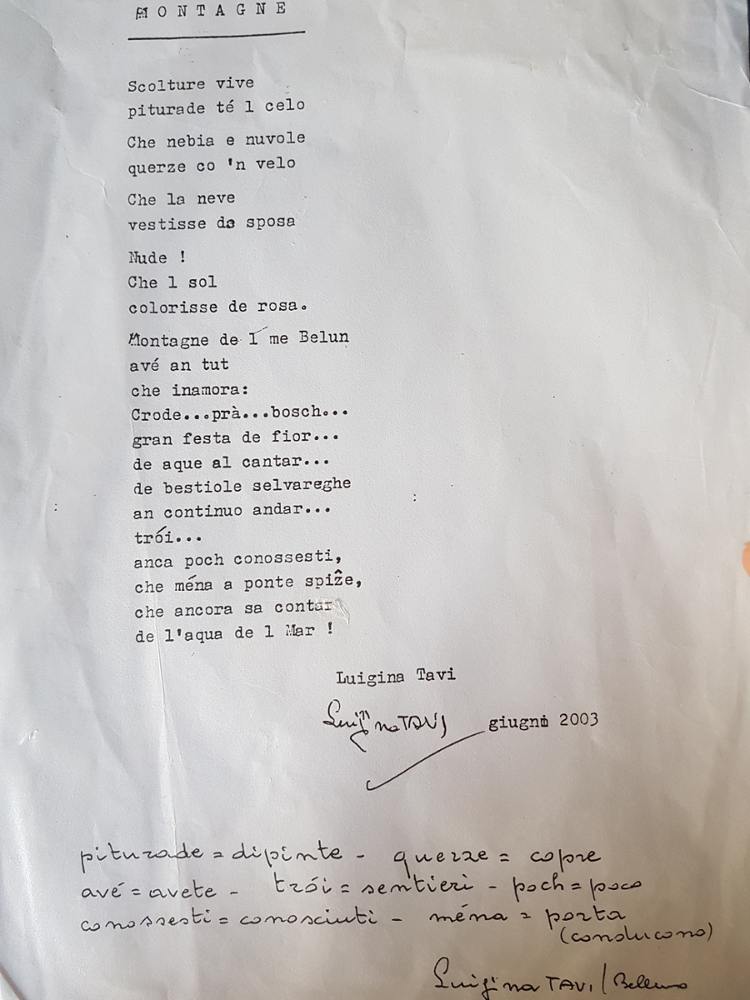 MONTAGNE
Scolture vive
piturade té l celo
Che nebia e nuvole
querze co 'n velo
Che la neve
vestisse da sposa
Nude !
Che l sol
colorisse de rosa.
Montagne de l me Belun
avé an tut
che inamora:
Crode...prà...bosch...
gran festa de fior...
de aque al cantar...
de bestiole selvareghe
an continuo andar...
trói...
anca poch conossesti,
che ména a ponte spiže,
che ancora sa contar
de l'aqua de l Mar !
Luigina Tavi
Luigina TAVI giugno 2003
piturade = dipinte - querze = copre
avé = avete - trói = sentieri - poch = poco
conossesti = conosciuti - ména = porta
(conducono)
Luigina TAVI / Belluno